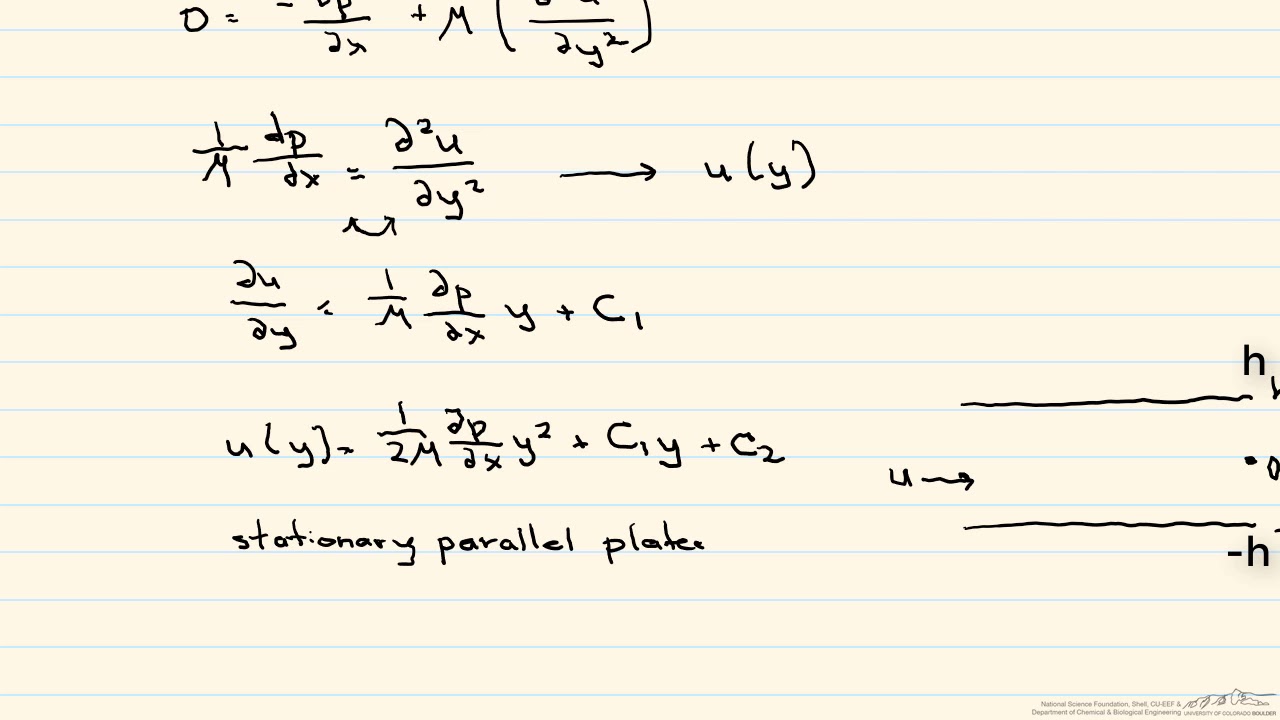 0 = -∂p/∂x + μ (∂²u/∂y²)
1/μ dp/dx = ∂²u/∂y² → u(y)
∂u/∂y = 1/μ ∂p/∂x y + C₁
h
u(y) = 1/2μ ∂p/∂x y² + C₁y + C₂
u →
stationary parallel plates
-h
National Science Foundation, Shell, CU-EEF &
Department of Chemical & Biological Engineering UNIVERSITY OF COLORADO BOULDER